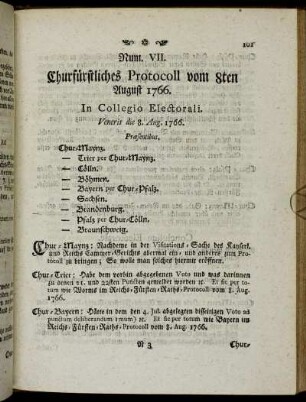 101
Num. VII.
Churfürstliches Protocoll vom 8ten
August 1766.
In Collegio Electorali.
Veneris die 8. Aug. 1766.
Præsentibus,
Chur-Maynz.
— Trier per Chur-Maynz.
— Cölln.
— Böhmen.
— Bayern per Chur-Pfalz.
— Sachsen.
— Brandenburg.
— Pfalz per Chur-Cölln.
— Braunschweig.
Chur-Maynz: Nachdeme in der Visitations-Sache des Kayserl.
und Reichs Cammer-Gerichts abermal ein- und anderes zum Pro-
tocoll zu bringen; So wolle man solches hiermit eröffnet.
Chur-Trier: Habe dem vorhin abgegebenen Voto und was darinnen
zu denen 21. und 22sten Puncten gemeldet worden ꝛc. Et sic per to-
tum wie Worms im Reichs-Fürsten-Raths-Protocoll vom 8. Aug.
1766.
Chur-Bayern: Häte in dem den 4. Jul. abgelegten disseitigen Voto ad
punctum deliberandum 1mum) ꝛc. Et sic per totum wie Bayern im
Reichs-Fürsten-Raths-Protocoll vom 8. Aug. 1766.
N 3
Chur-